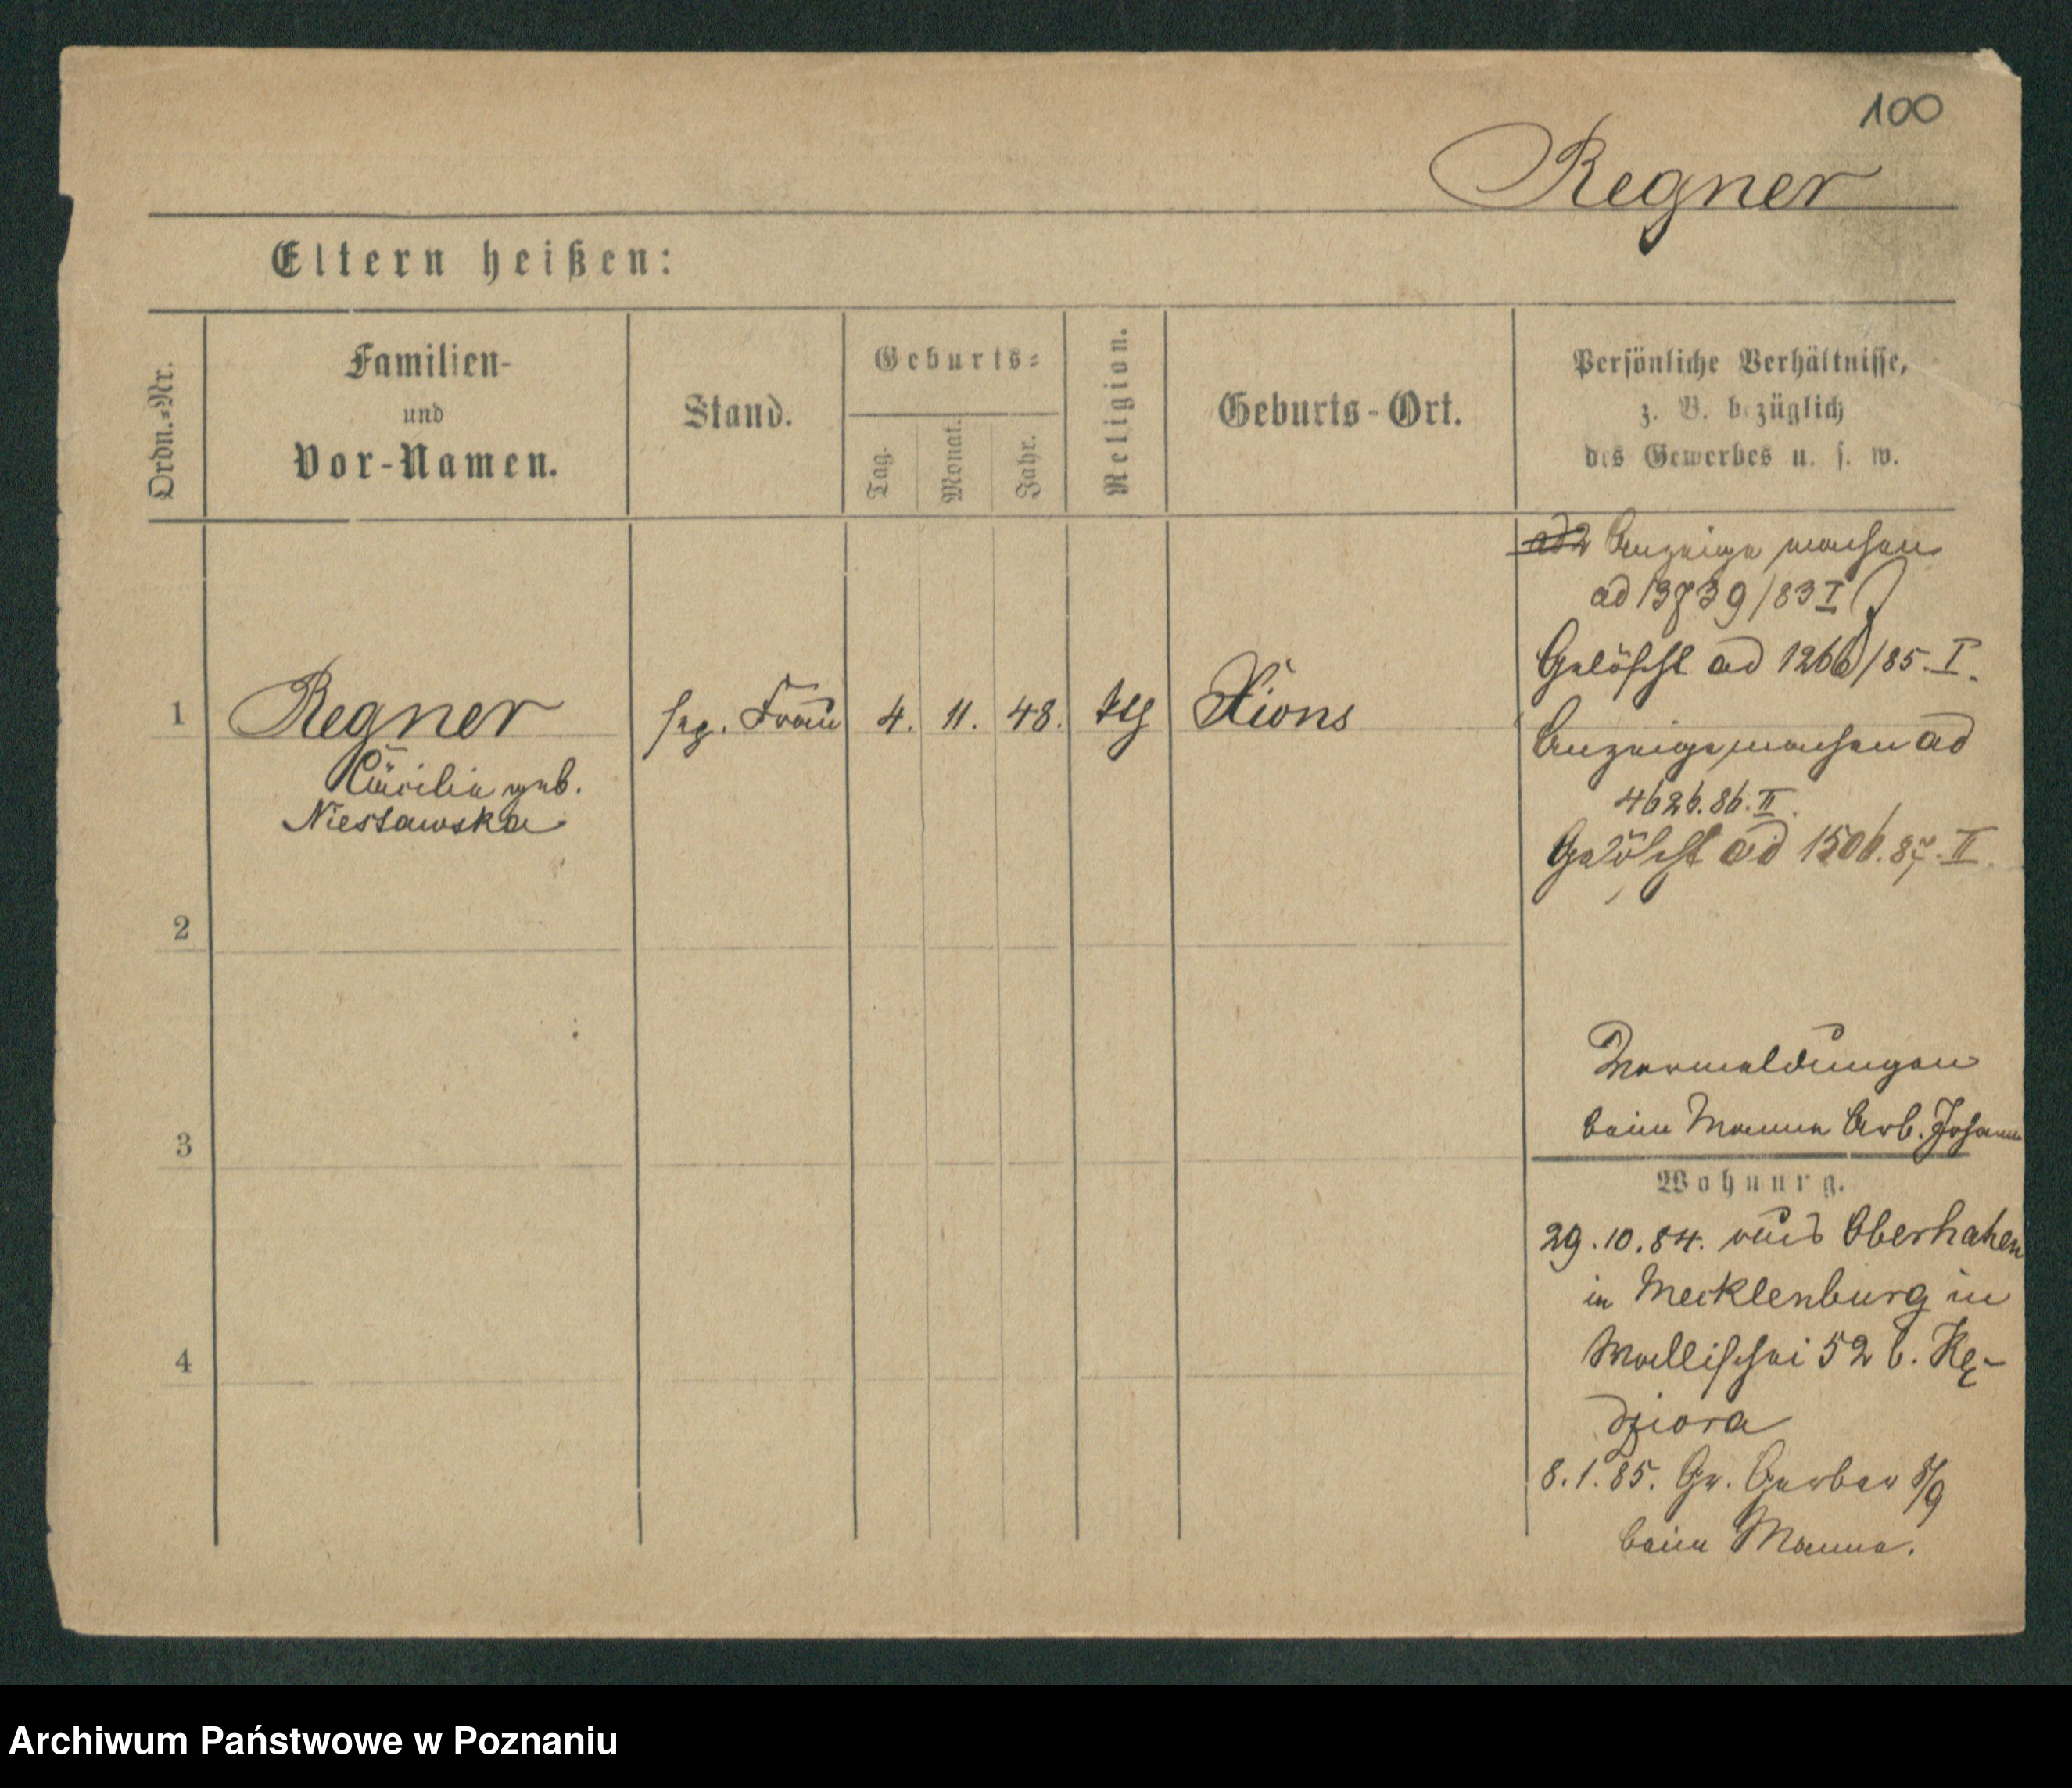 100
Regner
Eltern heißen:
Ordn.-Nr.
Familien-
und
Vor-Namen.
Stand.
Geburts-
Tag.
Monat.
Jahr.
Religion.
Geburts-Ort.
Persönliche Verhältnisse,
z. B. bezüglich
des Gewerbes u. s. w.
Anzeige machen
ad 13739/83 I
Gelöscht ad 1266/85. I.
1 Regner Frau 4. 11. 48. ktl Xions
Cäcilie geb.
Niestawska
Anzeige machen ad
4626.86. II.
Gelöscht ad 1506.87. II.
2
Vormeldungen
beim Manne Arb. Johann
3
Wohnung.
29.10.84. aus Oberhahen
in Mecklenburg in
Wallischei 52 b. Kę-
dziora
4
8.1.85. Gr. Gerber 8/9
beim Manne.
Archiwum Państwowe w Poznaniu